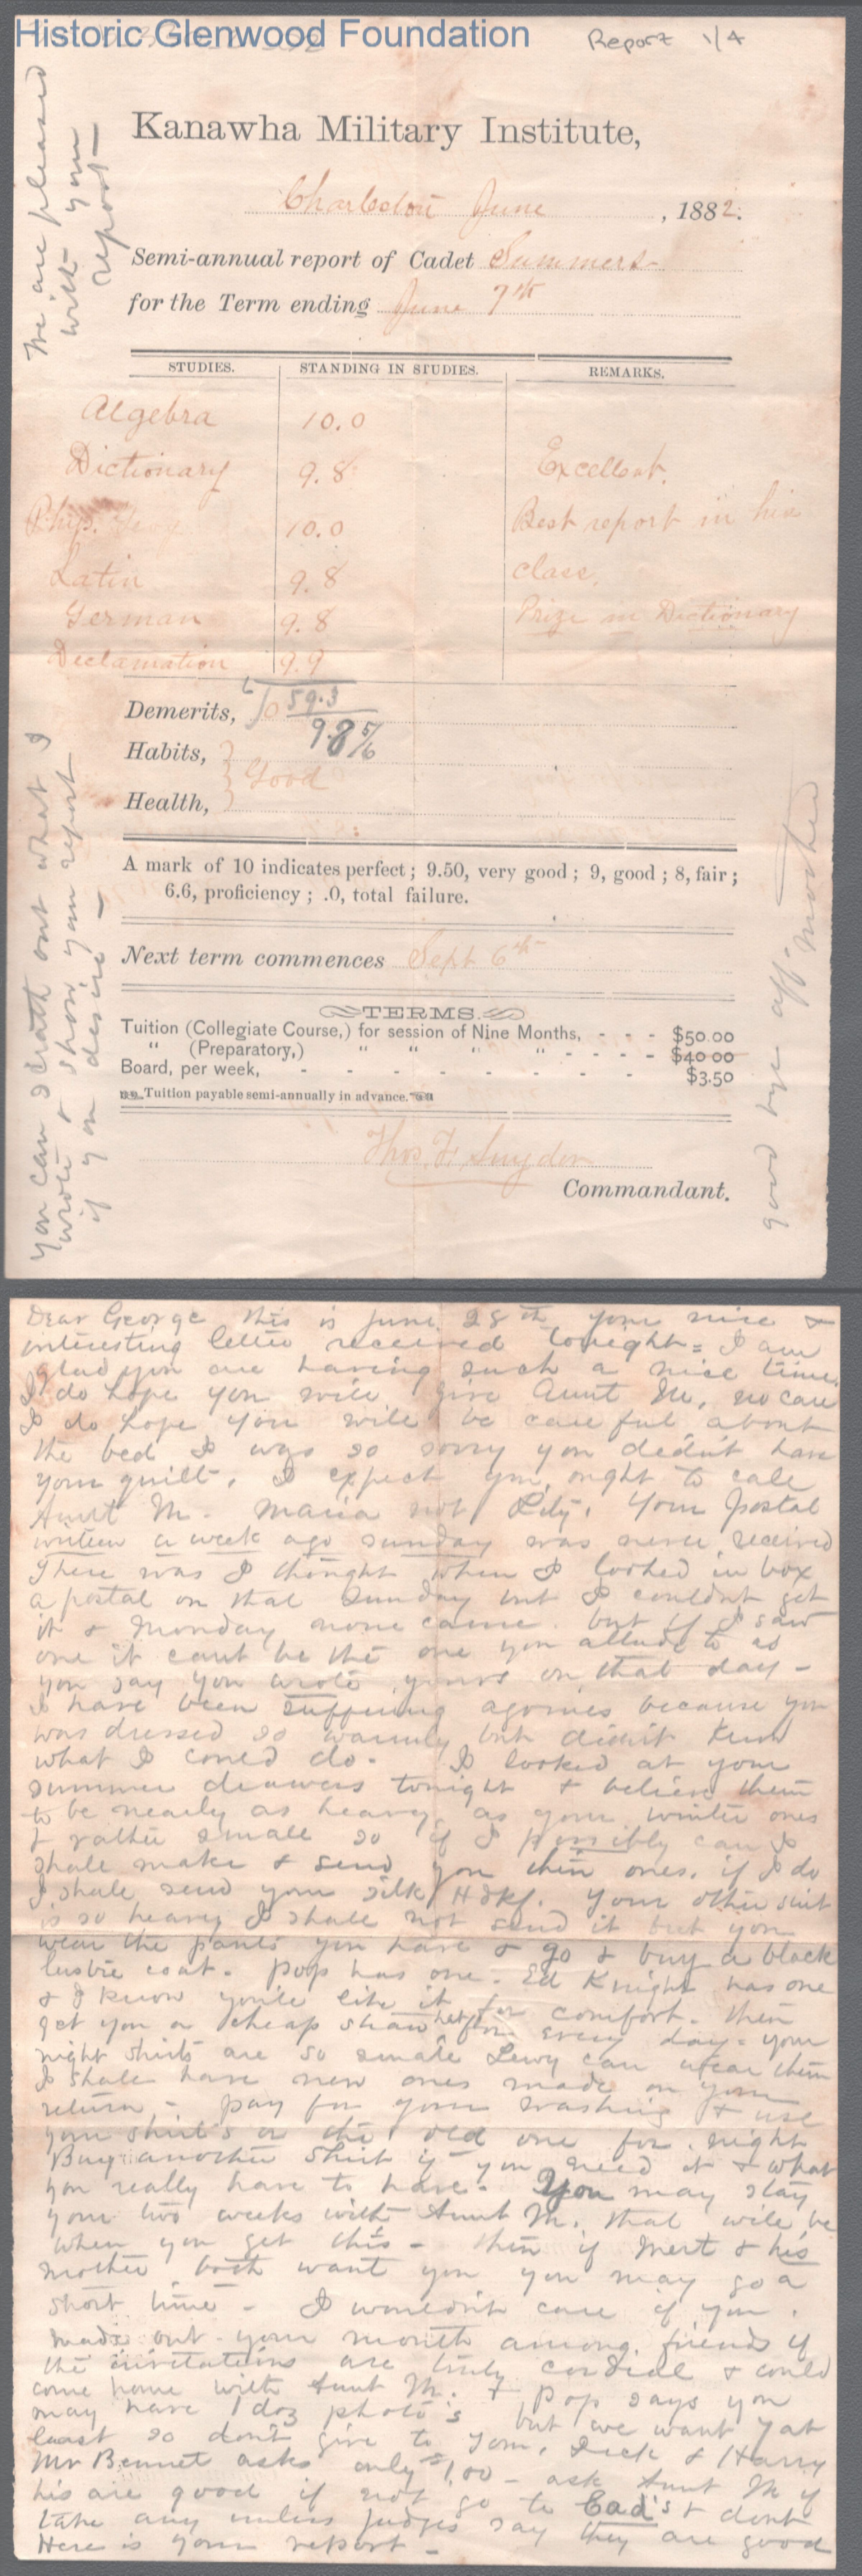 Historic Glenwood Foundation
Report 1/4
We are pleased
with your
report —
Kanawha Military Institute,
Charleston June , 1882.
Semi-annual report of Cadet Summers
for the Term ending June 7th
STUDIES. STANDING IN STUDIES. REMARKS.
Algebra 10.0
Dictionary 9.8 Excellent.
Phys. Geog 10.0 Best report in his
Latin 9.8 class.
German 9.8 Prize in Dictionary
Declamation 9.9
Demerits, 0 6 59.3
9.8 5/6
Habits,
Good
Health,
A mark of 10 indicates perfect; 9.50, very good; 9, good; 8, fair;
6.6, proficiency; .0, total failure.
Next term commences Sept 6th
TERMS.
Tuition (Collegiate Course,) for session of Nine Months, - - - $50.00
" (Preparatory,) " " " " - - - - $40.00
Board, per week, - - - - - - - - $3.50
Tuition payable semi-annually in advance.
Thos. F. Snyder
Commandant.
you can scratch out what I
wrote & show your report
if you desire —
good bye aff. mother
Dear George this is June 28th your nice &
interesting letter received tonight = I am
glad you are having such a nice time.
I do hope you will give Aunt M. no care
I do hope you will be careful about
the bed I was so sorry you didn't have
your quilt. I expect you ought to call
Aunt M. Maria not Lity. Your postal
written a week ago sunday was never received
There was I thought when I looked in box
a postal on that Sunday but I couldn't get
it & Monday none came. but if I saw
one it cant be the one you allude to as
you say you wrote yours on that day –
I have been suffering agonies because you
was dressed so warmly but didn't know
what I could do. I looked at your
summer drawers tonight & believe them
to be nearly as heavy as your winter ones
& rather small so if I possibly can I
shall make & send you thin ones. if I do
I shall send your silk Hdkf. Your other suit
is so heavy I shall not send it but you
wear the pants you have & go & buy a black
lustre coat. Pop has one. Ed Knight has one
& I know you'll like it for comfort. Then
get you a cheap straw hat for every day = your
night shirts are so small Lewy can wear them
I shall have new ones made on your
return – pay for your washing & use
your shirts or the old one for night
Buy another shirt if you need it & what
you really have to have. You may stay
your two weeks with Aunt M. that will be
when you get this – then if Mert & his
mother both want you you may go a
short time – I wouldn't care if you
made out your month among friends if
the invitations are truly cordial & could
come home with Aunt M. & Pop says you
may have 1 doz photo's but we want 7 at
least so don't give to Tom, Dick & Harry
Mr Bennet asks only $1.00 – ask Aunt M if
his are good if not go to Cad's & dont
take any unless judges say they are good
Here is your report –